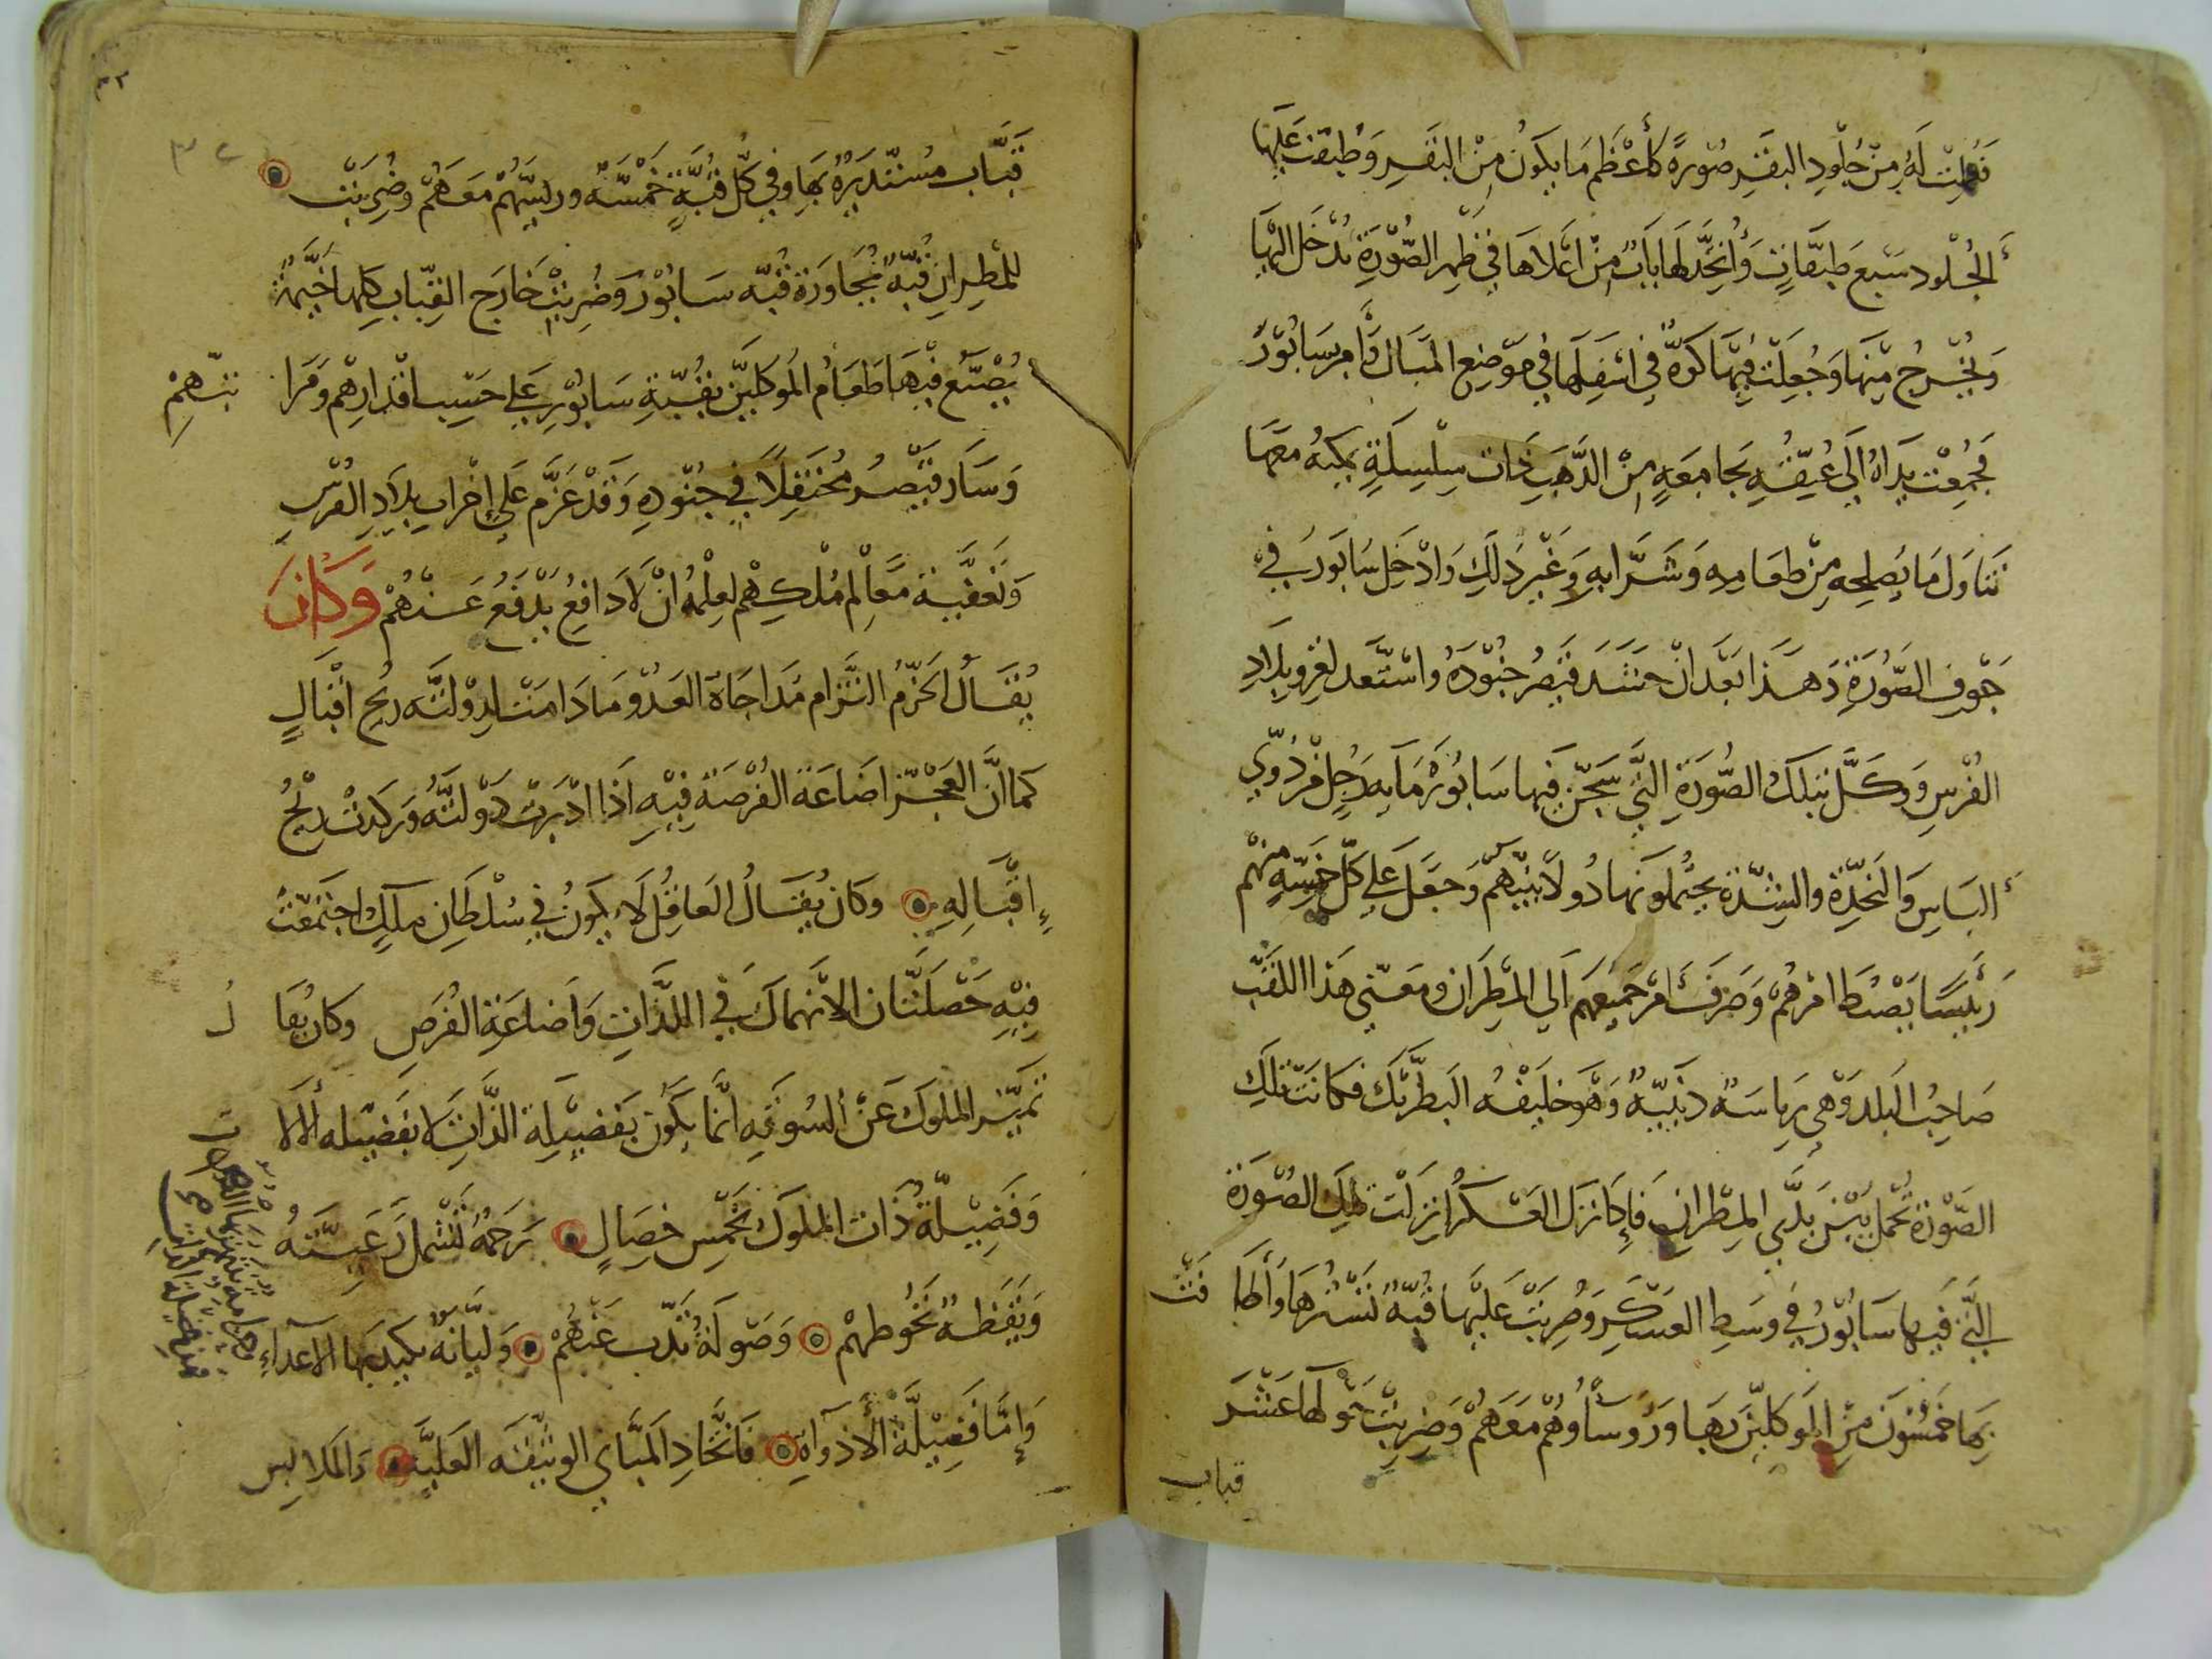 فعملت له من جلود البقر صورة كأعظم ما يكون من البقر وطبقت عليها
الجلود سبع طبقات واتخذ لها باب من اعلاها في ظهر الصورة يدخل اليها
ويخرج منها وجعلت فيها كوة في اسفلها في موضع المبال وأمر سابور
فجمعت يداه الى عنقه بجامعة من الذهب ذات سلسلة يمكنه معها
تناول ما يصلحه من طعامه وشرابه وغير ذلك وادخل سابور في
جوف الصورة وهذا بعد ان حشد قيصر جنوده واستعد لغزو بلاد
الفرس ووكل بتلك الصورة التي سجن فيها سابور مايه رجل من ذوي
الباس والنجدة والشدة يحملونها دولا بينهم وجعل على كل خمسة منهم
رئيسا يضبط امرهم وصرف أمر جميعهم الي المطران ومعنى هذا اللقب
صاحب البلد وهي رياسة دينية وهو خليفه البطرك فكانت تلك
الصورة تحمل بين يدي المطران فإذا نزل العسكر انزلت تلك الصورة
التي فيها سابور في وسط العسكر وضربت عليها قبة تسترها وأطافت
بها خمسون من الموكلين بها ورؤساؤهم معهم وضربت حولها عشر
قباب
٣٢
قباب مستديرة بها وفي كل قبة خمسة ورئيسهم معهم وضربت
للمطران قبة مجاورة قبه سابور وضربت خارج القباب كلها خيمة
يصنع فيها طعام الموكلين بقبة سابور على حسب اقدارهم ومراتبهم
وسار قيصر محتفلا في جنوده وقد عزم على إخراب بلاد الفرس
وتعفية معالم ملكهم لعلمه ان لا دافع يدفع عنهم وكان
يقال الحزم التزام مداجاة العدو ما دامت لدولته ريح اقبال
كما ان العجز اضاعة الفرصة فيه اذا ادبرت دولته وركدت ريح
إقباله وكان يقال العاقل لا يكون في سلطان ملك اجتمعت
فيه خصلتان الانهماك في اللذات واضاعة الفرص وكان يقال
تميز الملوك عن السوقه انما يكون بفضيلة الذات لا بفضيله ألالات
وفضيلة ذات الملوك بخمس خصال رحمة تشمل رعيته
ويقظة تحوطهم وصولة تذب عنهم ولبانة يكيد بها الاعداء
وإما فضيلة الأدواة فاتخاذ المباني الوثيقه العلية والملابس